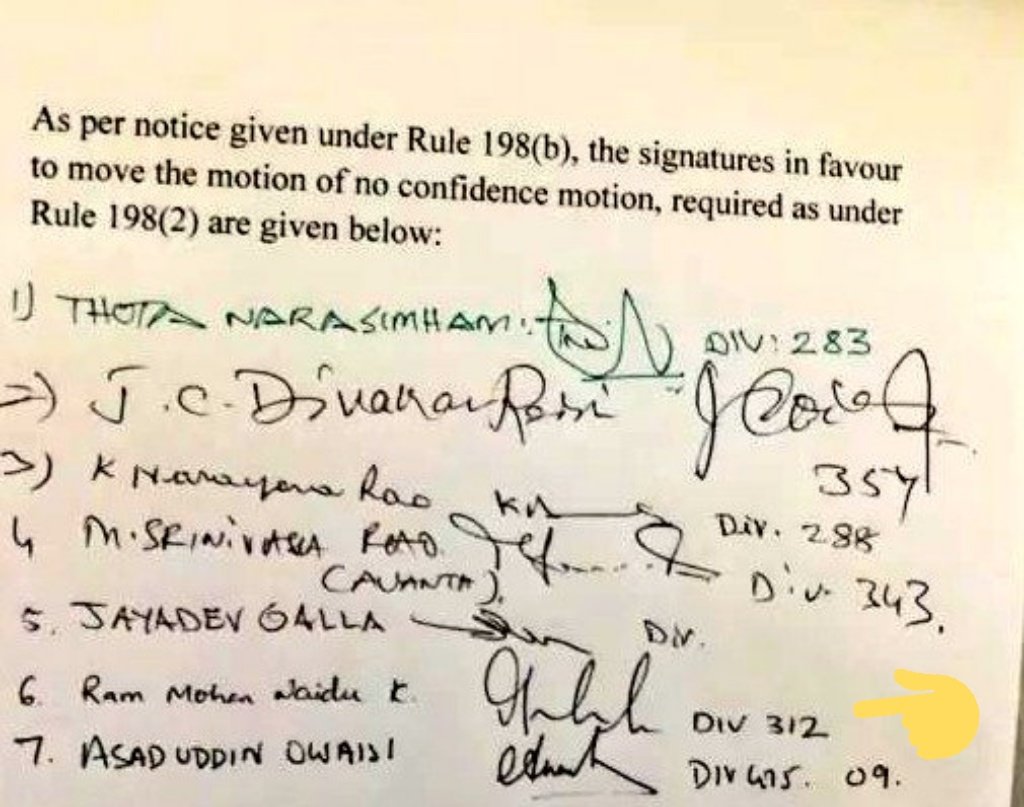 As per notice given under Rule 198(b), the signatures in favour
to move the motion of no confidence motion, required as under
Rule 198(2) are given below:
1) THOTA NARASIMHAM. DIV: 283
2) J.C. Divakar Reddi 357
3) K Narayana Rao Div. 288
4 M. SRINIVASA RAO Div. 343.
(AVANTHI).
5. JAYADEV GALLA Div.
6. Ram Mohan Naidu K. DIV 312
7. ASADUDDIN OWAISI DIV 09.